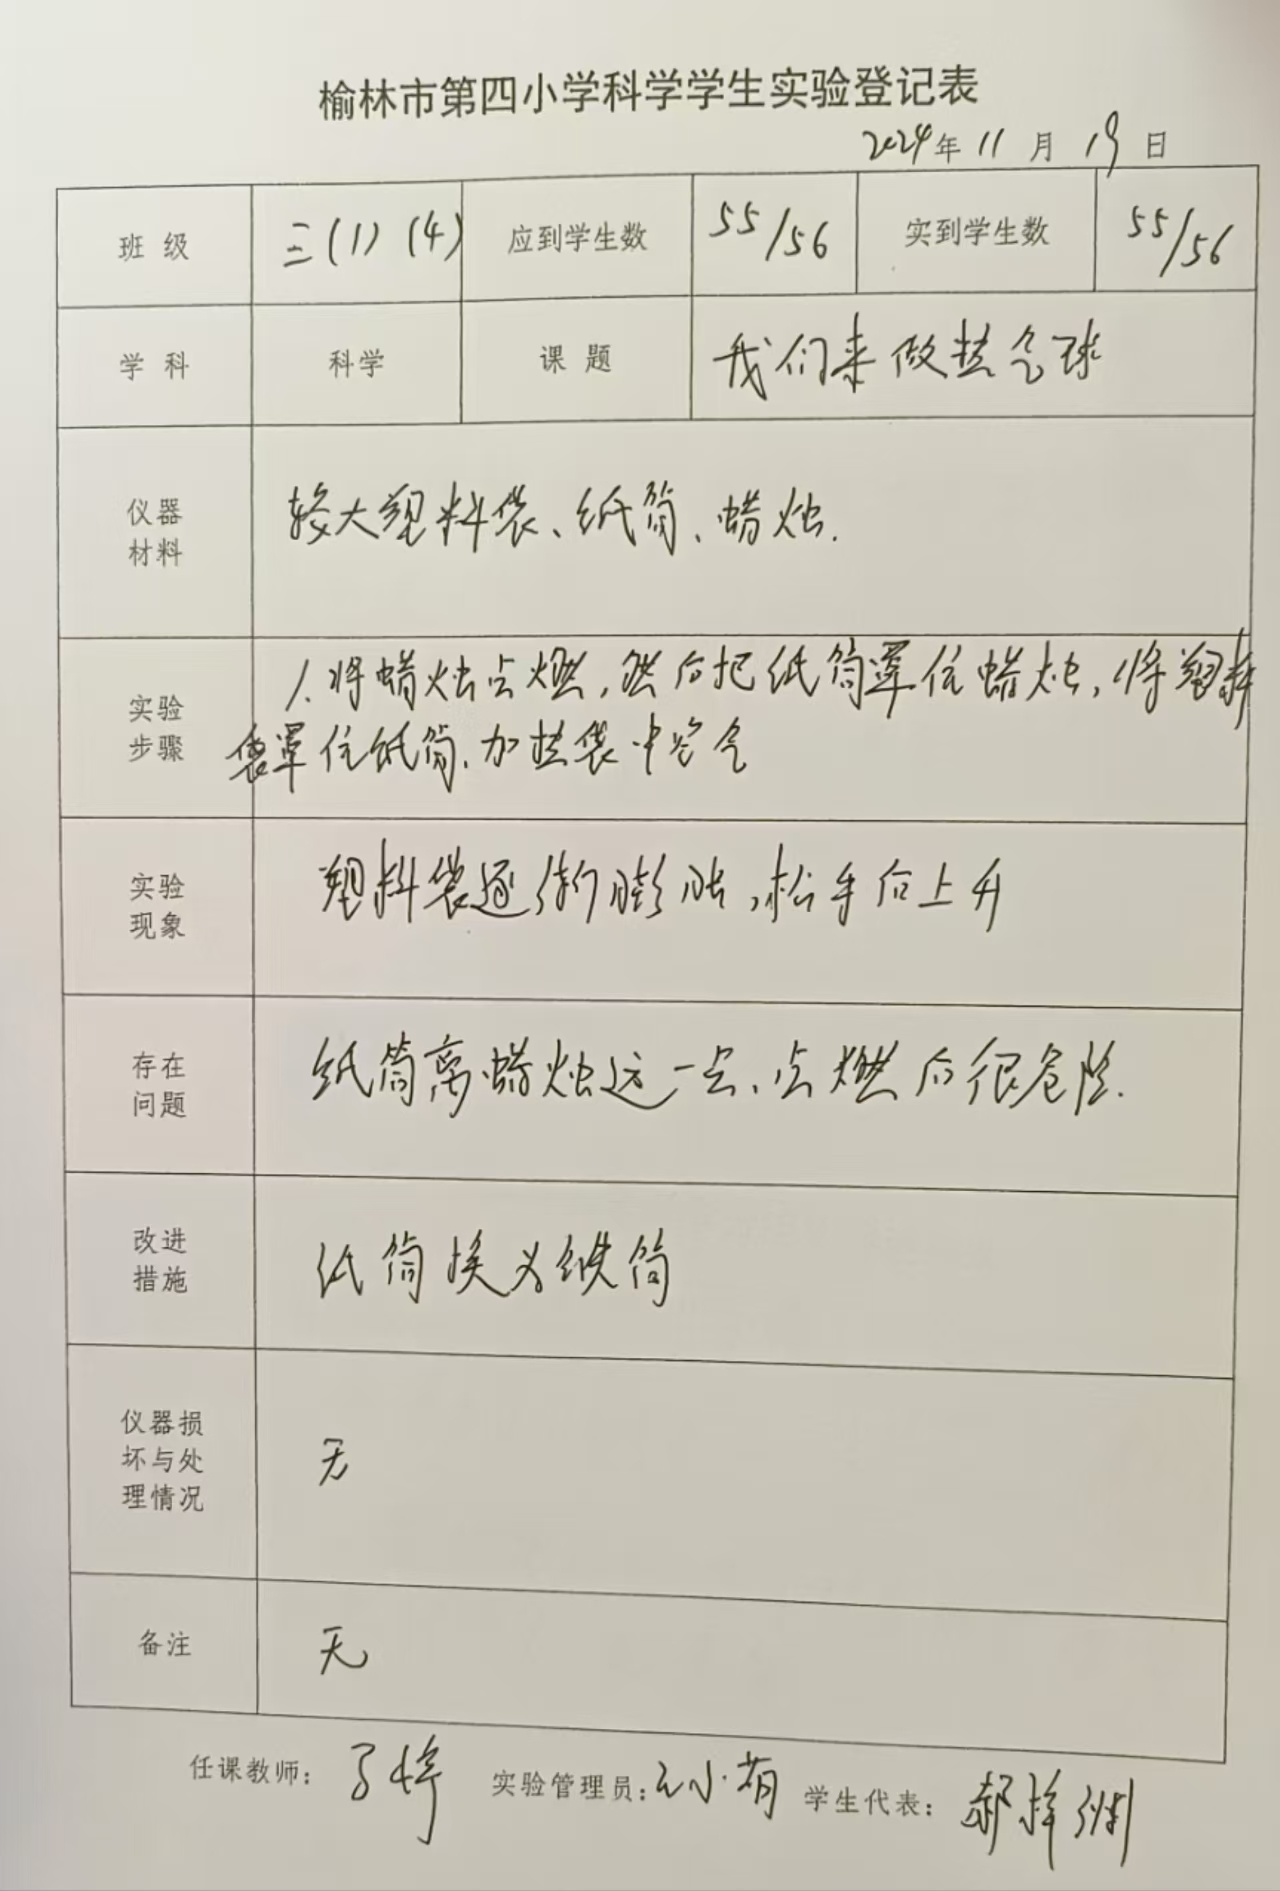 榆林市第四小学科学学生实验登记表
2024年11月19日
班级 三(1)(4) 应到学生数 55/56 实到学生数 55/56
学科 科学 课题 我们来做热气球
仪器
材料
较大塑料袋、纸筒、蜡烛.
实验
步骤
1.将蜡烛点燃,然后把纸筒罩住蜡烛,将塑料
袋罩住纸筒.加热袋中空气
实验
现象
塑料袋逐渐膨胀,松手后上升
存在
问题
纸筒离蜡烛远一点、点燃后很危险.
改进
措施
纸筒换为铁筒
仪器损
坏与处
理情况
无
备注
无
任课教师: 实验管理员: 学生代表: